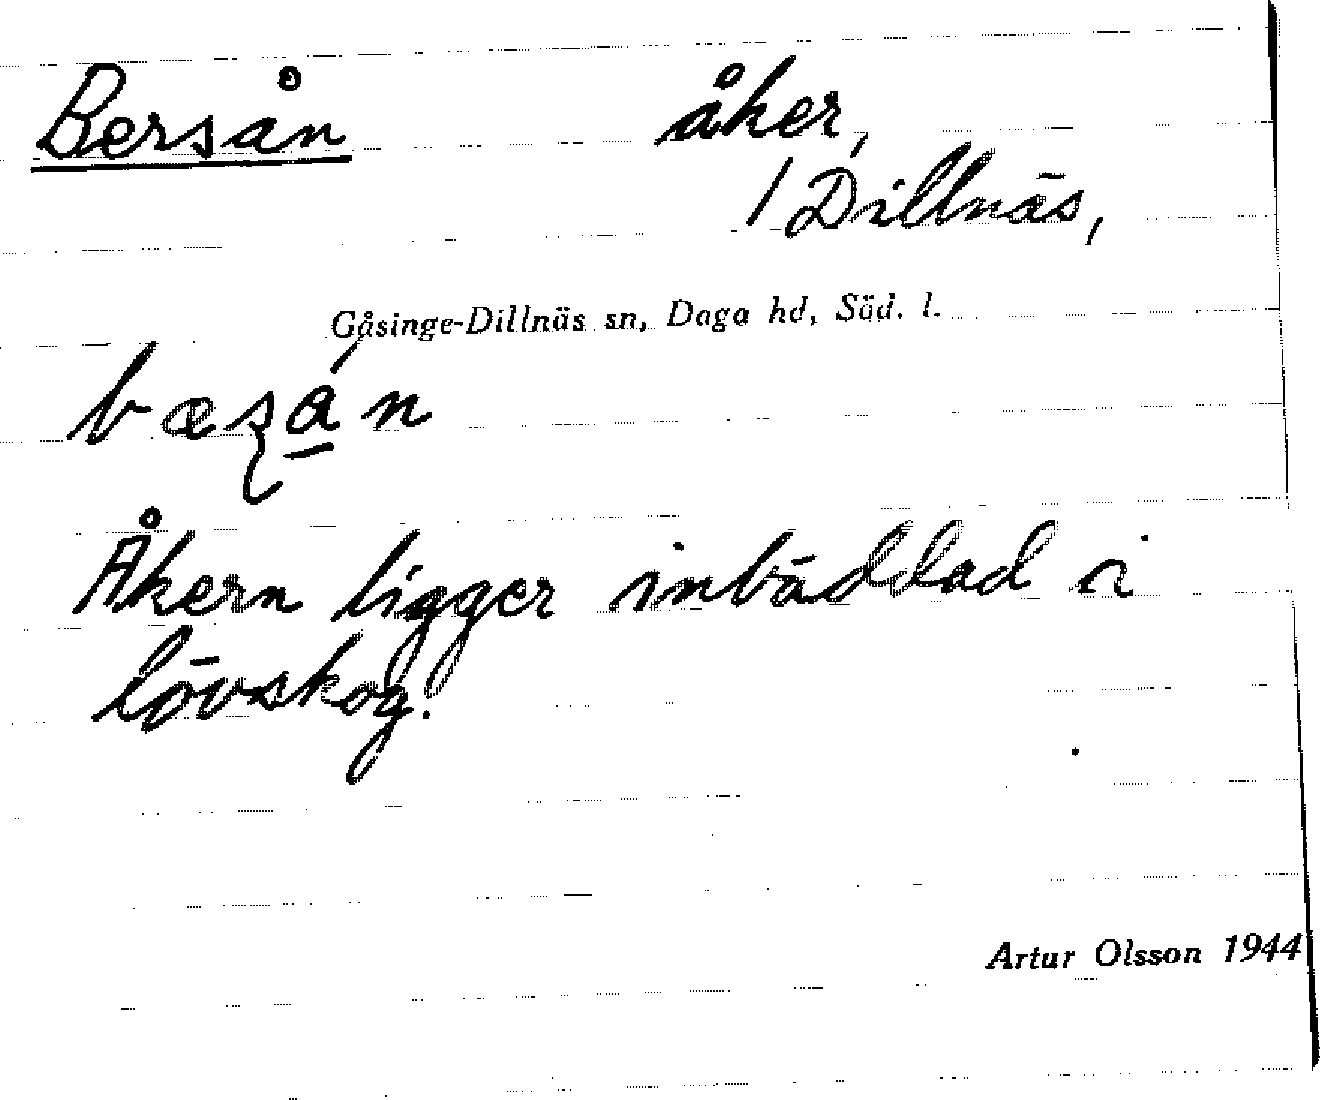 Berså̊n åker,
/ Dillnäs,
Gåsinge-Dillnäs sn, Daga hd, Söd. l.
Åkern ligger inbäddad i
lövskog.
Artur Olsson 1944